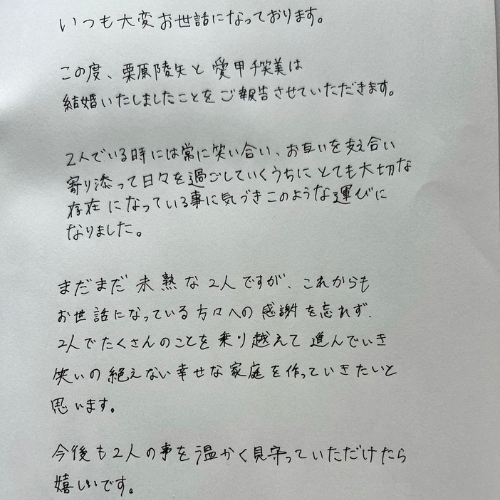 いつも大変お世話になっております。
この度、栗原陵矢と愛甲千笑美は
結婚いたしましたことをご報告させていただきます。
2人でいる時には常に笑い合い、お互いを支え合い
寄り添って日々を過ごしていくうちにとても大切な
存在になっている事に気づきこのような運びに
なりました。
まだまだ未熟な2人ですが、これからも
お世話になっている方々への感謝を忘れず、
2人でたくさんのことを乗り越えて進んでいき
笑いの絶えない幸せな家庭を作っていきたいと
思います。
今後も2人の事を温かく見守っていただけたら
嬉しいです。